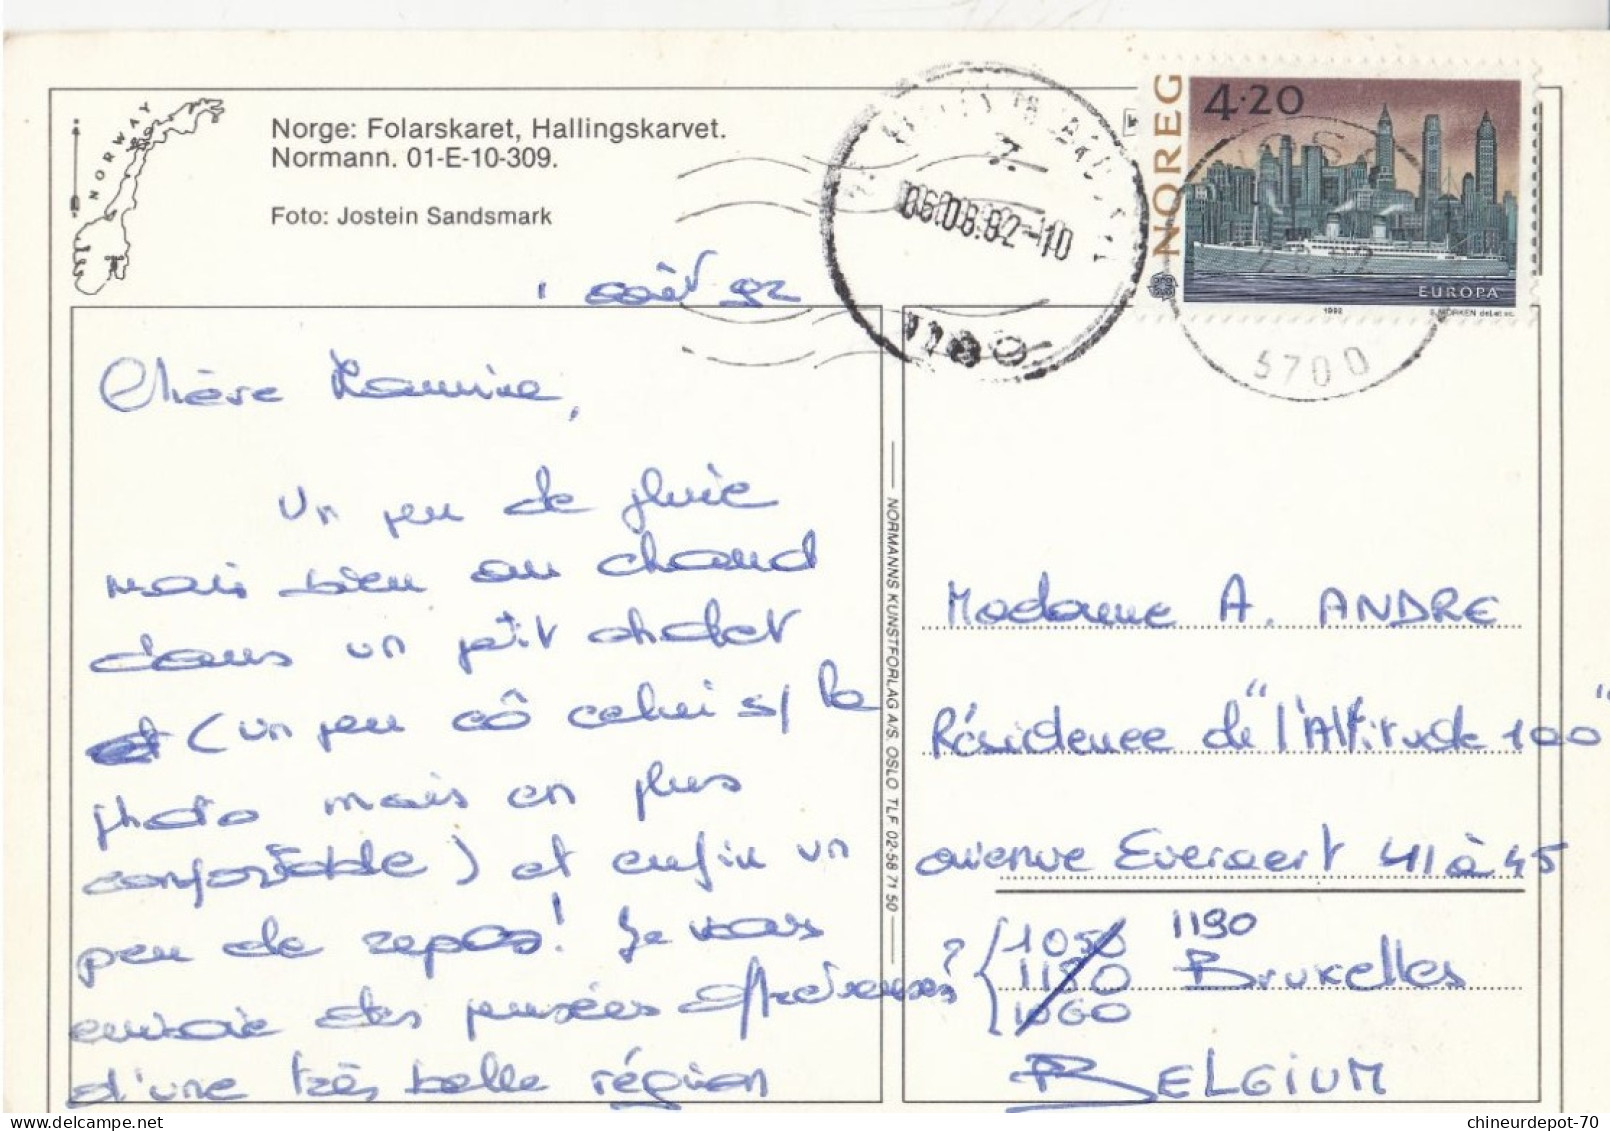 NORWAY
Norge: Folarskaret, Hallingskarvet.
Normann. 01-E-10-309.
Foto: Jostein Sandsmark
7.
06.08.92-10
NOREG
4·20
EUROPA
1992
S. MORKEN del.et sc.
5700
1 août 92
Chère
Un peu de pluie
mais bien au chaud
dans un p'tit chalet
et (un peu cô celui s/ la
photo mais en plus
confortable) et enfin un
peu de repos! Je vous
envoie des pensées affectueuses
d'une très belle région
NORMANNS KUNSTFORLAG A/S. OSLO TLF 02-58 71 50
Madame A. ANDRE
Résidence de "l'Altitude 100"
avenue Everaert 41 à 45
? { 1050 1190
1180 Bruxelles
1060
BELGIUM
chineurdepot-70